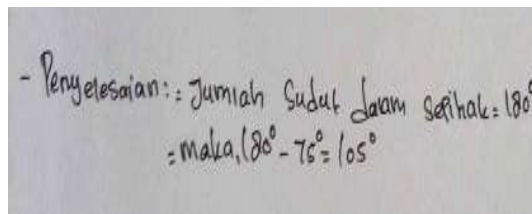 - Penyelesaian: = Jumlah Sudut dalam sepihak = 180°
= maka, 180° - 75° = 105°